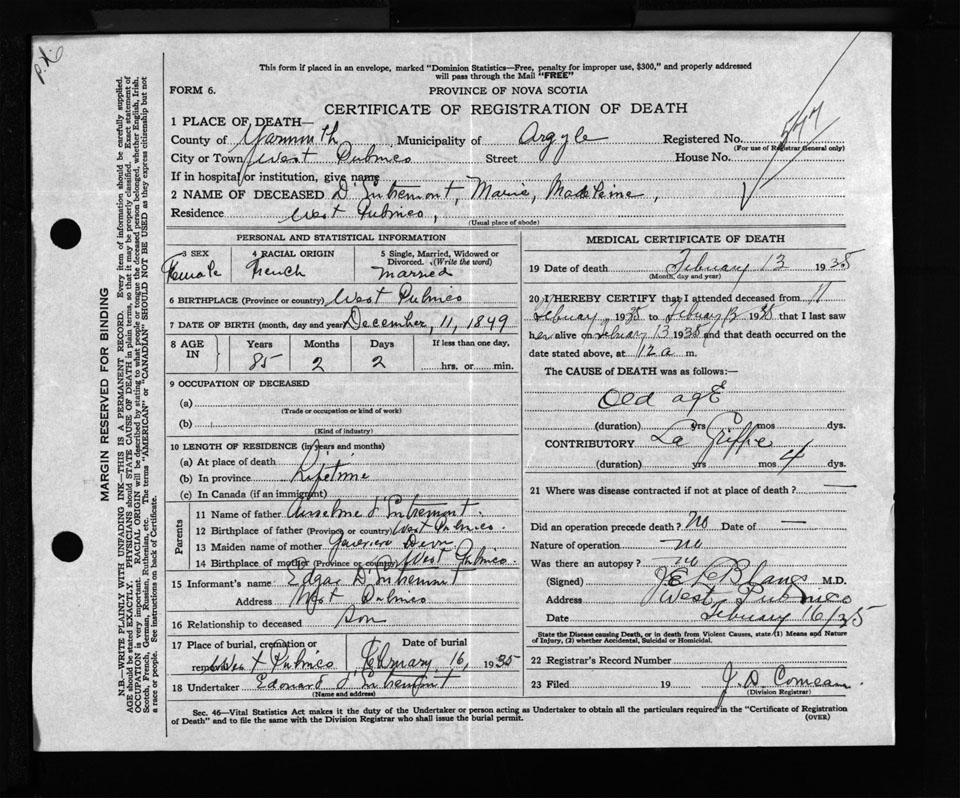 This form if placed in an envelope, marked "Dominion Statistics—Free, penalty for improper use, $300," and properly addressed
will pass through the Mail "FREE"
FORM 6.
PROVINCE OF NOVA SCOTIA
CERTIFICATE OF REGISTRATION OF DEATH
1 PLACE OF DEATH—
County of Yarmouth Municipality of Argyle Registered No.
(For use of Registrar General only)
City or Town West Pubnico Street House No.
If in hospital or institution, give name
2 NAME OF DECEASED D'Entremont, Marie, Madeleine,
Residence West Pubnico,
(Usual place of abode)
PERSONAL AND STATISTICAL INFORMATION
3 SEX 4 RACIAL ORIGIN 5 Single, Married, Widowed or
Divorced. (Write the word)
Female French Married
6 BIRTHPLACE (Province or country) West Pubnico
7 DATE OF BIRTH (month, day and year) December, 11, 1849
8 AGE IN Years Months Days If less than one day,
85 2 2 hrs. or min.
9 OCCUPATION OF DECEASED
(a)
(Trade or occupation or kind of work)
(b)
(Kind of industry)
10 LENGTH OF RESIDENCE (in years and months)
(a) At place of death
(b) In province Lifetime
(c) In Canada (if an immigrant)
Parents
11 Name of father d'Entremont
12 Birthplace of father (Province or country) West Pubnico.
13 Maiden name of mother
14 Birthplace of mother (Province or country) West Pubnico.
15 Informant's name Edgar D'Entremont
Address West Pubnico
16 Relationship to deceased Son
17 Place of burial, cremation or
removal West Pubnico
Date of burial
February 16, 1935
18 Undertaker Edouard d'Entremont
(Name and address)
MEDICAL CERTIFICATE OF DEATH
19 Date of death February 13 1935
(Month, day and year)
20 I HEREBY CERTIFY that I attended deceased from 11
February 1935 to February 13 1935 that I last saw
her alive on February 13 1935 and that death occurred on
date stated above, at 12 a m.
The CAUSE of DEATH was as follows:—
Old agE
(duration) yrs mos dys.
CONTRIBUTORY La Grippe
(duration) yrs mos 4 dys.
21 Where was disease contracted if not at place of death? —
Did an operation precede death? No Date of —
Nature of operation no
Was there an autopsy? no
(Signed) J E LeBlanc M.D.
Address West Pubnico
Date February 16/35
State the Disease causing Death, or in death from Violent Causes, state (1) Means and Nature
of Injury, (2) whether Accidental, Suicidal or Homicidal.
22 Registrar's Record Number
23 Filed 19 J. D. Comeau
(Division Registrar)
Sec. 46—Vital Statistics Act makes it the duty of the Undertaker or person acting as Undertaker to obtain all the particulars required in the "Certificate of Registration
of Death" and to file the same with the Division Registrar who shall issue the burial permit.
(OVER)
MARGIN RESERVED FOR BINDING
N.B.—WRITE PLAINLY WITH UNFADING INK—THIS IS A PERMANENT RECORD. Every item of information should be carefully supplied.
AGE should be stated EXACTLY. PHYSICIANS should STATE CAUSE OF DEATH in plain terms, so that it may be properly classified. Exact statement of
OCCUPATION is very important. RACIAL ORIGIN will be described by stating to what people or tongue the deceased person belonged, whether English, Irish,
Scotch, French, German, Russian, Ruthenian, etc. The terms "AMERICAN" or "CANADIAN" SHOULD NOT BE USED as they express citizenship but not
a race or people. See instructions on back of Certificate.